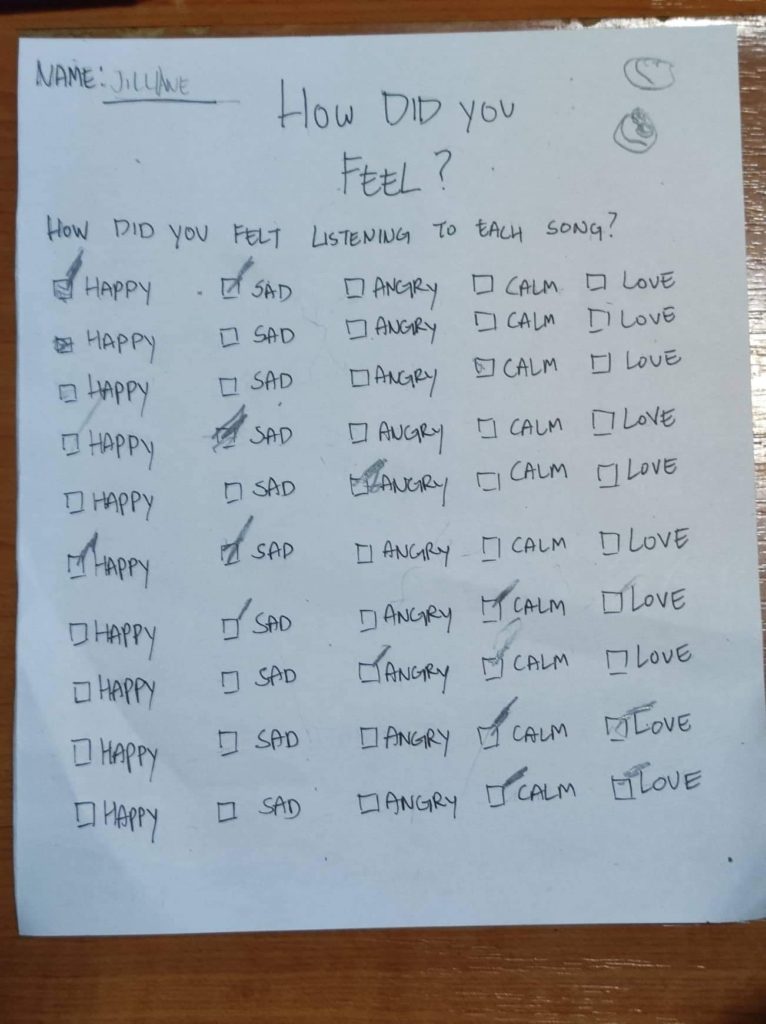 NAME: JILLIANE
HOW DID YOU
FEEL?
HOW DID YOU FELT LISTENING TO EACH SONG?
HAPPY SAD ANGRY CALM LOVE
HAPPY SAD ANGRY CALM LOVE
HAPPY SAD ANGRY CALM LOVE
HAPPY SAD ANGRY CALM LOVE
HAPPY SAD ANGRY CALM LOVE
HAPPY SAD ANGRY CALM LOVE
HAPPY SAD ANGRY CALM LOVE
HAPPY SAD ANGRY CALM LOVE
HAPPY SAD ANGRY CALM LOVE
HAPPY SAD ANGRY CALM LOVE